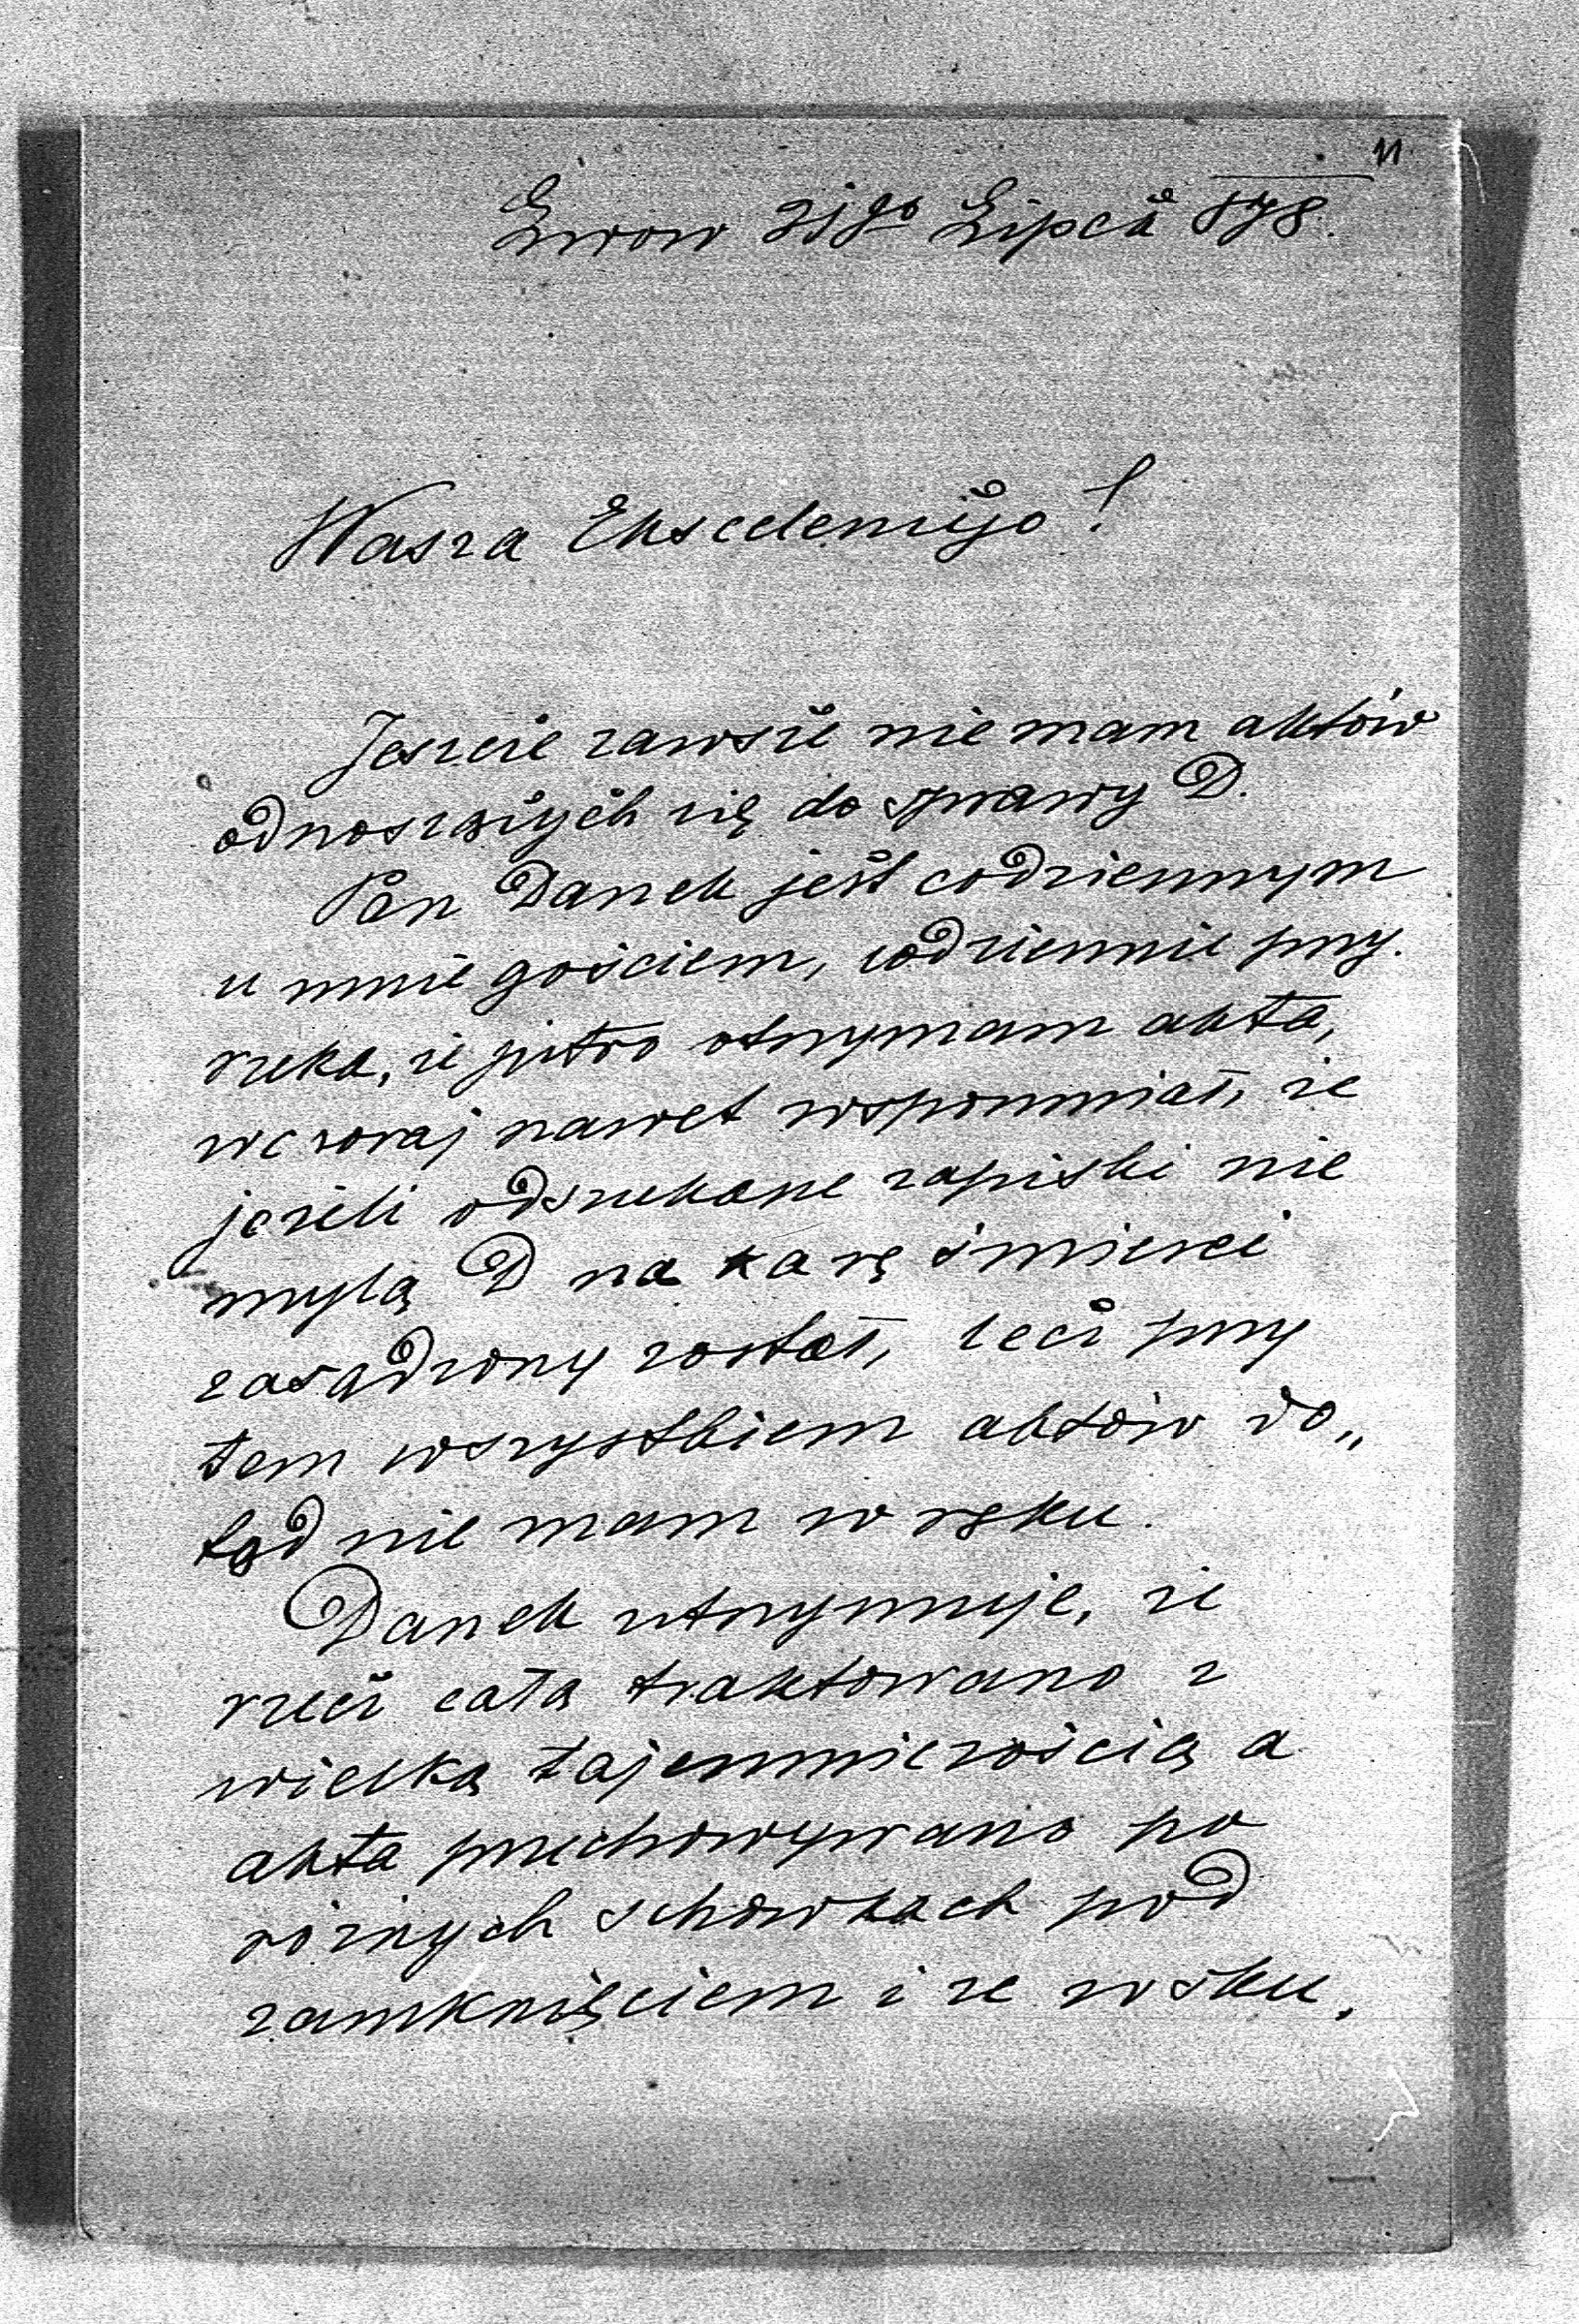 11
Lwow 21go Lipca 878.
Wasza Ekscelencijo!
Jeszcze zawsze nie mam aktów
odnoszących się do sprawy D.
Pan Danek jest codziennym
u mnie gościem, codziennie przy-
rzeka, że jutro otrzymam akta,
wczoraj nawet wspomniał, że
jeżeli odszukane zapiski nie
mylą D na karę śmierci
zasądzony został, lecz przy
tem wszystkiem aktów do„
tąd nie mam w ręku.
Danek utrzymuje, że
rzecz całą traktowano z
wielką tajemniczością a
akta przechowywano po
różnych schowkach pod
zamknięciem i że w sku,